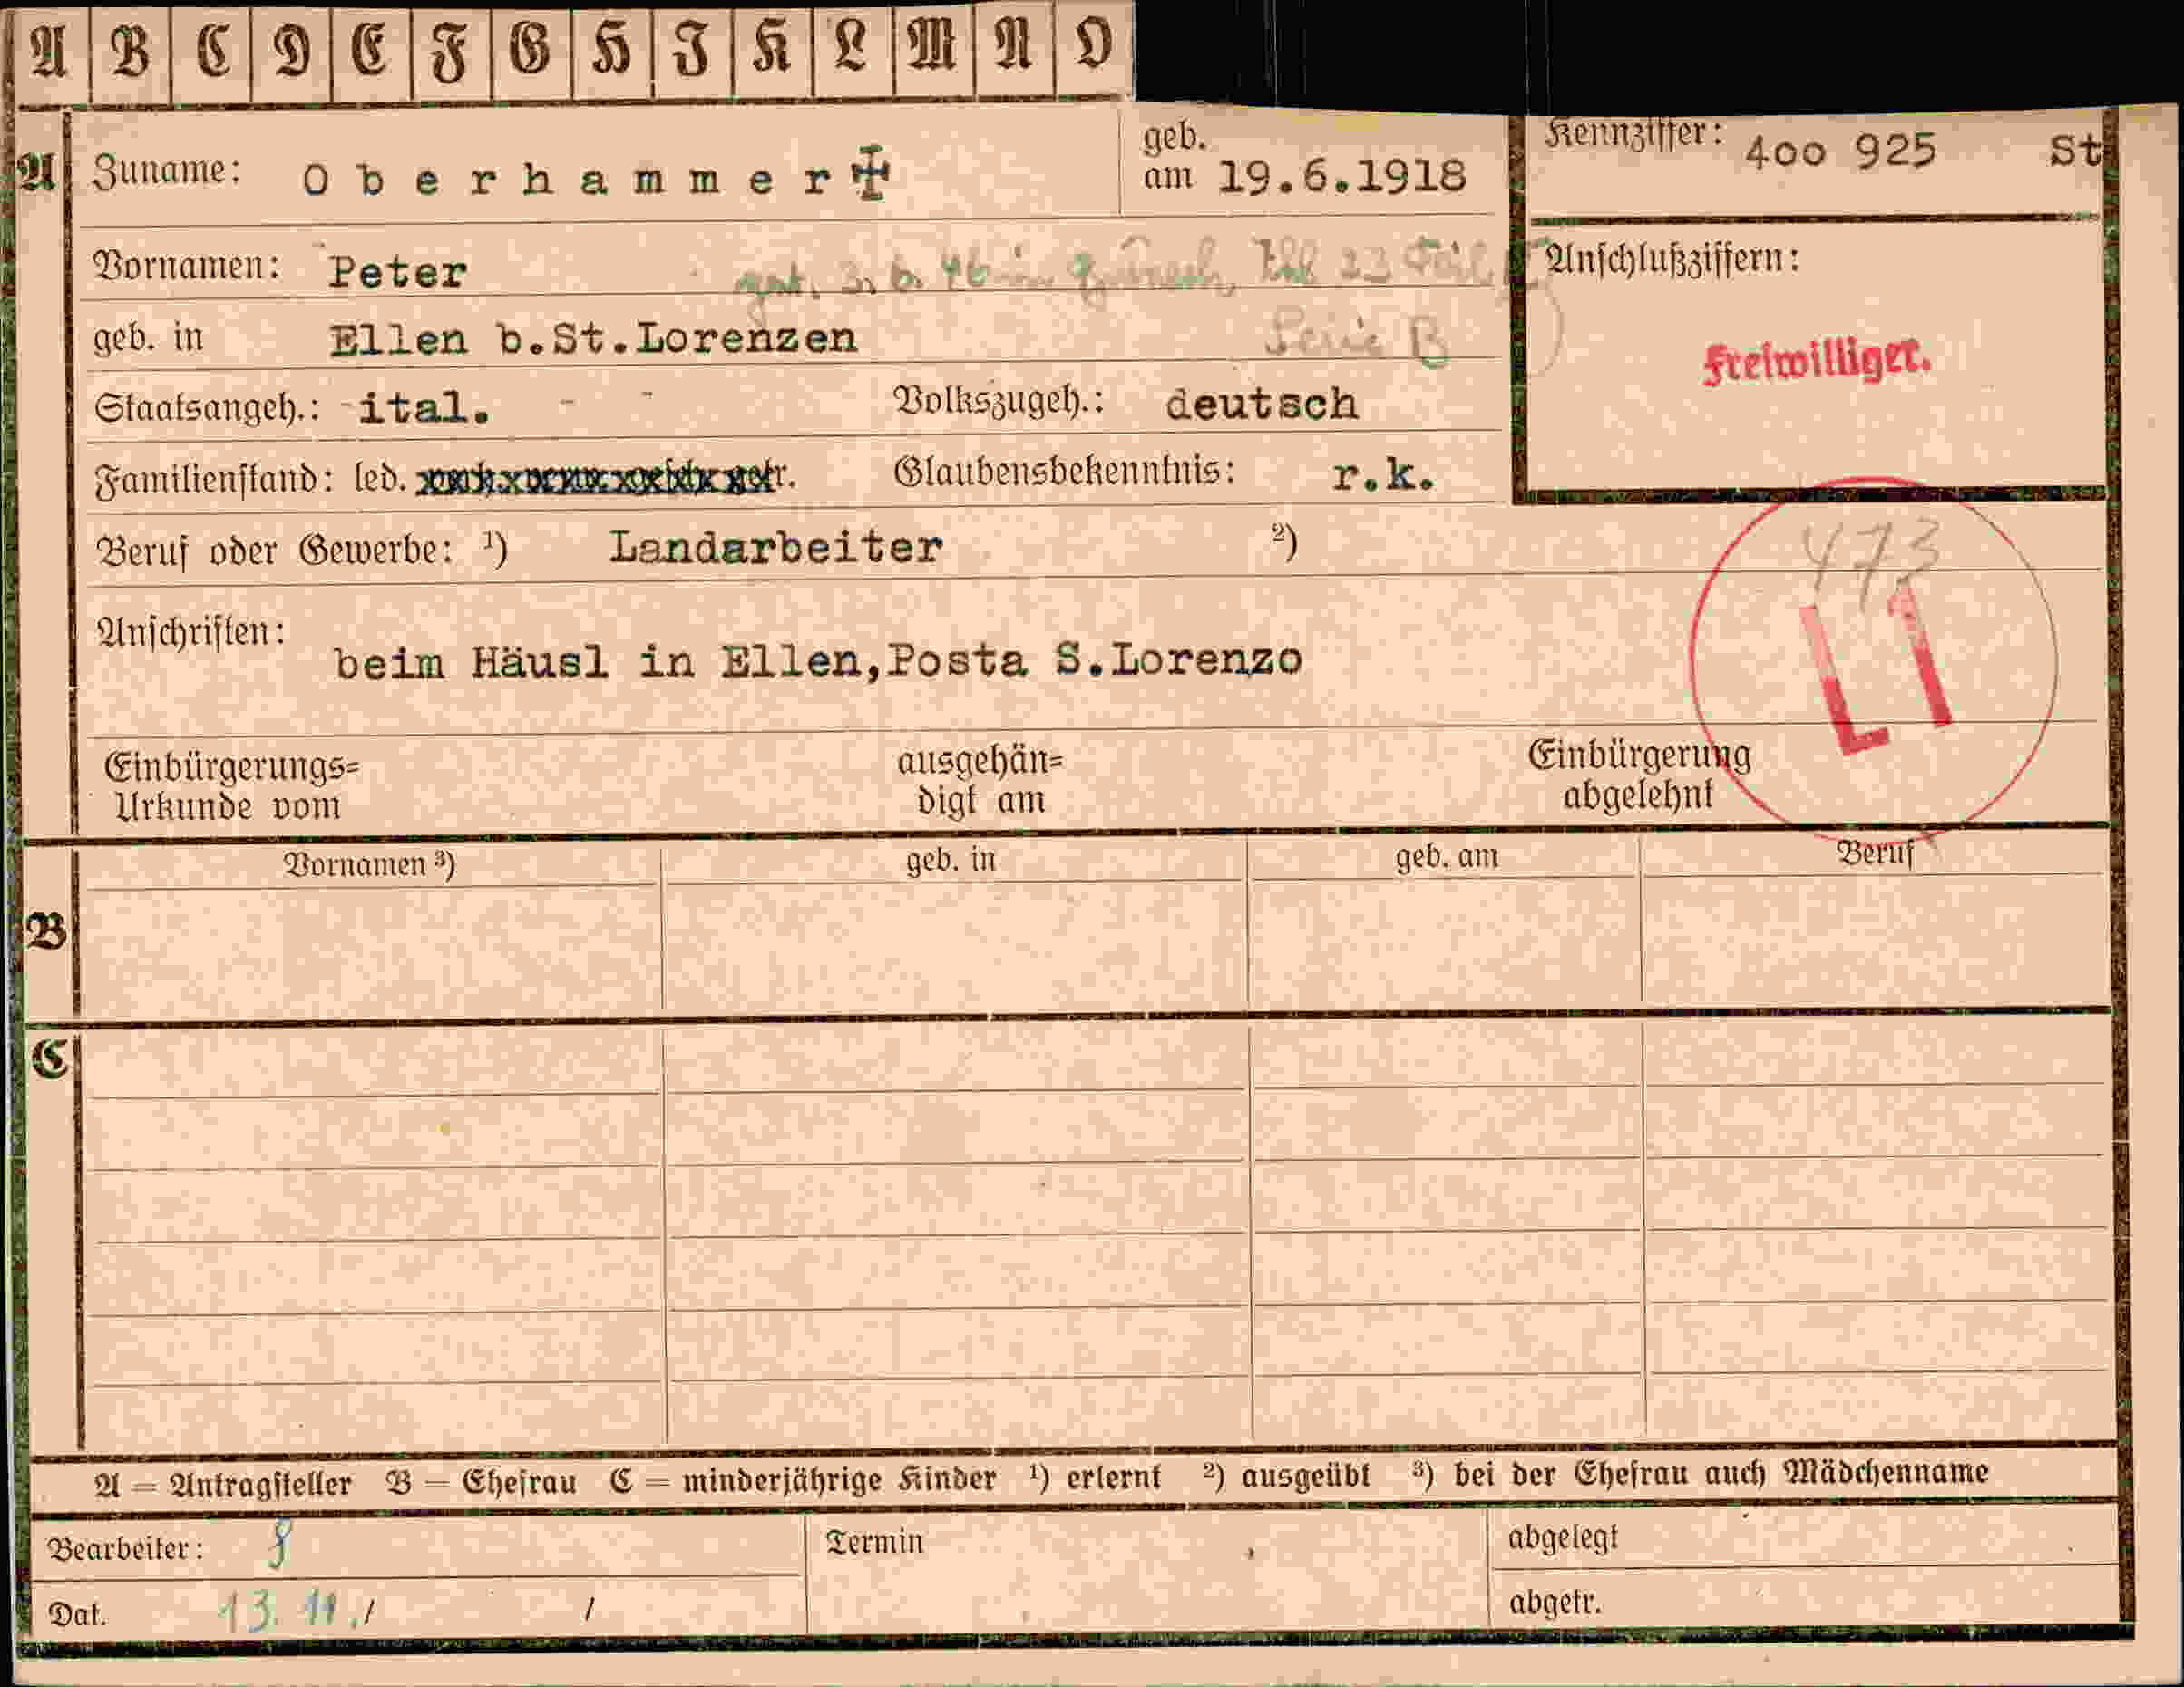 A B C D E F G H I K L M N O
A Zuname: Oberhammer ✠ geb. am 19.6.1918 Kennziffer: 400 925 St
Vornamen: Peter 3. 6. 46 in 23
Anschlußziffern:
geb. in Ellen b.St.Lorenzen Serie B
Freiwilliger.
Staatsangeh.: ital. - - Volkszugeh.: deutsch
Familienstand: led. Glaubensbekenntnis: r.k.
Beruf oder Gewerbe: ¹) Landarbeiter ²)
473
Anschriften: beim Häusl in Ellen,Posta S.Lorenzo
Einbürgerungs=
Urkunde vom
ausgehän=
digt am
Einbürgerung
abgelehnt
Vornamen ³) geb. in geb. am Beruf
B
C
A = Antragsteller B = Ehefrau C = minderjährige Kinder ¹) erlernt ²) ausgeübt ³) bei der Ehefrau auch Mädchenname
Bearbeiter: Termin abgelegt
Dat. 13. 11. / / abgetr.